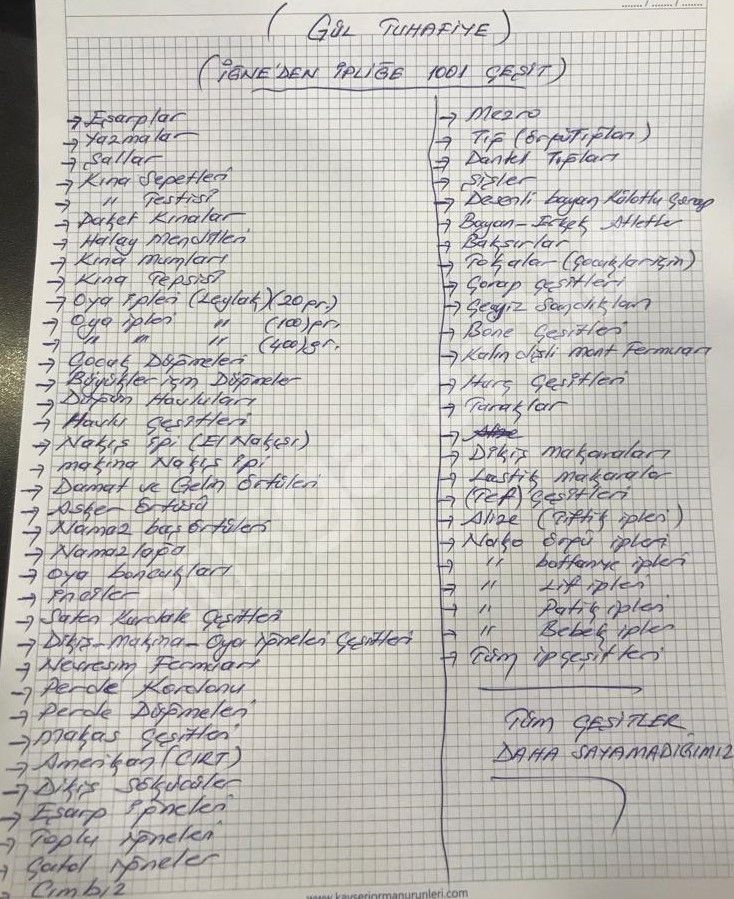 (GÜL TUHAFİYE)
(İĞNE'DEN İPLİĞE 1001 ÇEŞİT)
→ Eşarplar
→ Yazmalar
→ Şallar
→ Kına Sepetleri
→ " Testisi
→ Paket Kınalar
→ Halay Mendilleri
→ Kına mumları
→ Kına Tepsisi
→ Oya ipleri (Leylak) (20 gr.)
→ Oya ipleri " (100) gr.
→ " " " (400) gr.
→ Çocuk Düğmeleri
→ Büyükler için Düğmeler
→ Düğün Havluları
→ Havlu Çeşitleri
→ Nakış ipi (El Nakışı)
→ makina Nakış ipi
→ Damat ve Gelin Örtüleri
→ Asker Örtüsü
→ Namaz baş örtüleri
→ Namazlağa
→ Oya boncukları
→ inciler
→ Saten Kurdale Çeşitleri
→ Dikiş-makina-Oya iğneleri Çeşitleri
→ Nevresim Fermuarı
→ Perde Kordonu
→ Perde Düğmeleri
→ Makas Çeşitleri
→ Amerikan (CIRT)
→ Dikiş Sökücüler
→ Eşarp iğneleri
→ Toplu iğneleri
→ Çatal iğneler
→ Cımbız
→ Mezro
→ Tığ (Örgü Tığları)
→ Dantel Tığları
→ Şişler
→ Desenli bayan Külotlu Çorap
→ Bayan-Erkek Atletler
→ Baksırlar
→ Tokalar (Çocuklar için)
→ Çorap Çeşitleri
→ Çeyiz Sandıkları
→ Bone Çeşitleri
→ Kalın dişli mont Fermuarı
→ Harç Çeşitleri
→ Taraklar
→ Alize
→ Dikiş makaraları
→ Lastik makaralar
→ (Tef) Çeşitleri
→ Alize (Tiftik ipleri)
→ Nako Örgü ipleri
→ " battaniye ipleri
→ " Lif ipleri
→ " Patik ipleri
→ " Bebek ipleri
→ Tüm ip çeşitleri
TÜM ÇEŞİTLER
DAHA SAYAMADIĞIMIZ
www.kayseriormanurunleri.com